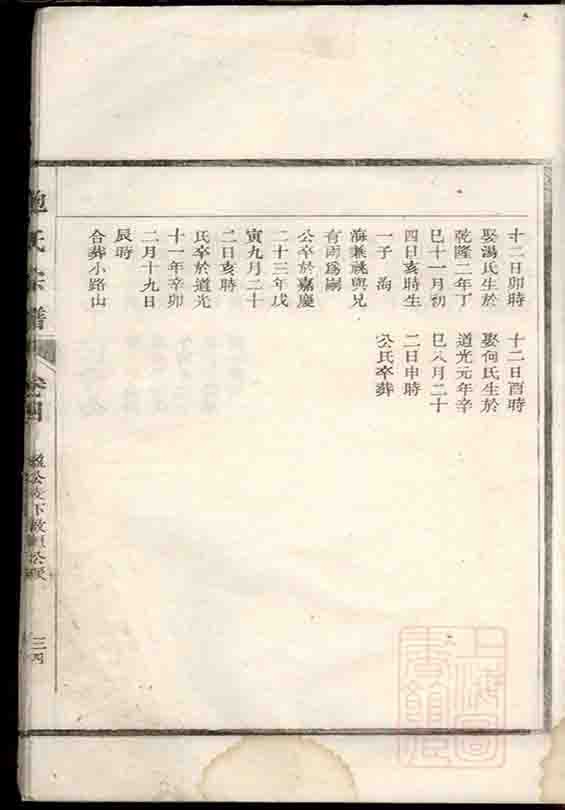 十二日卯時
娶湯氏生於
乾隆二年丁
巳十一月初
四日亥時生
一子
海兼祧與兄
有雨為嗣
公卒於嘉慶
二十三年戊
寅九月二十
二日亥時
氏卒於道光
十一年辛卯
二月十九日
辰時
合葬小路山
十二日酉時
娶何氏生於
道光元年辛
巳八月二十
二日申時
公氏卒葬
氏宗譜
卷四
三四
上海圖書館藏